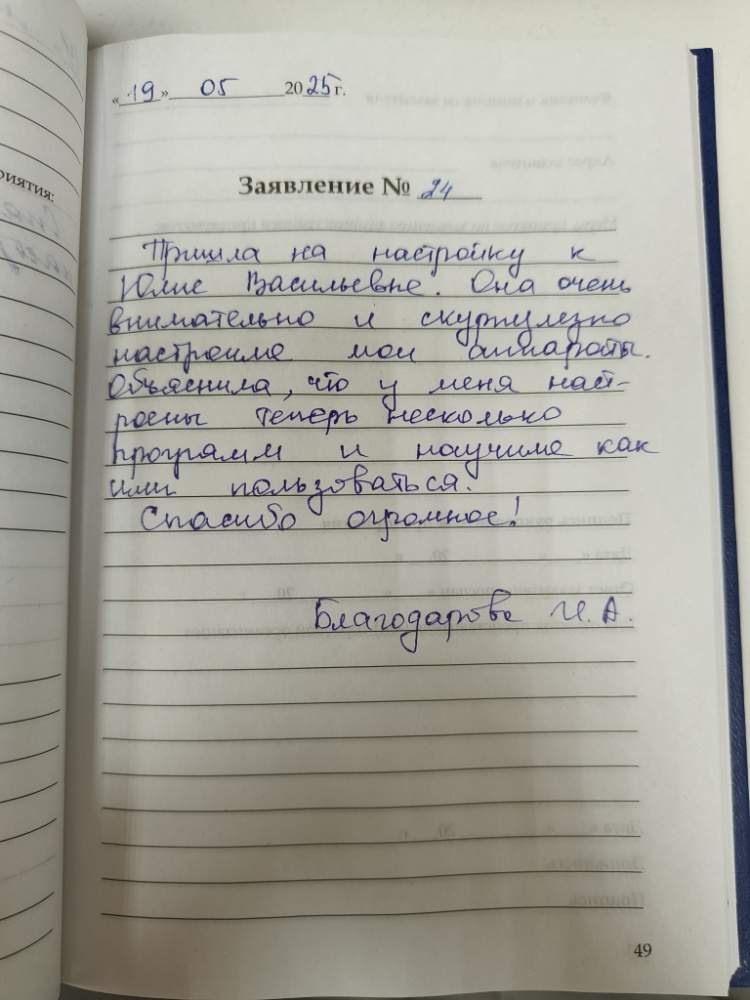 «19» 05 2025 г.
риятия:
Заявление № 24
Пришла на настройку к
Юлие Васильевне. Она очень
внимательно и скурпулезно
настроила мои аппараты.
Объяснила, что у меня наст-
роены теперь несколько
программ и научила как
ими пользоваться.
Спасибо огромное!
Благодарова И. А.
49